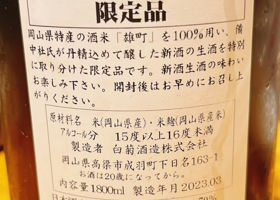 限定品
岡山県特産の酒米「雄町」を100%用い、備
中杜氏が丹精込めて醸した新酒の生酒を特別
に取り分けた限定品です。新酒生酒の味わい
お楽しみ下さい。開封後はお早めにお召し上
がりください。
原材料名 米(岡山県産)・米麹(岡山県産米)
アルコール分 15度以上16度未満
製造者 白菊酒造株式会社
岡山県高梁市成羽町下日名163-1
お酒は20歳になってから。
内容量1800ml 製造年月2023.03